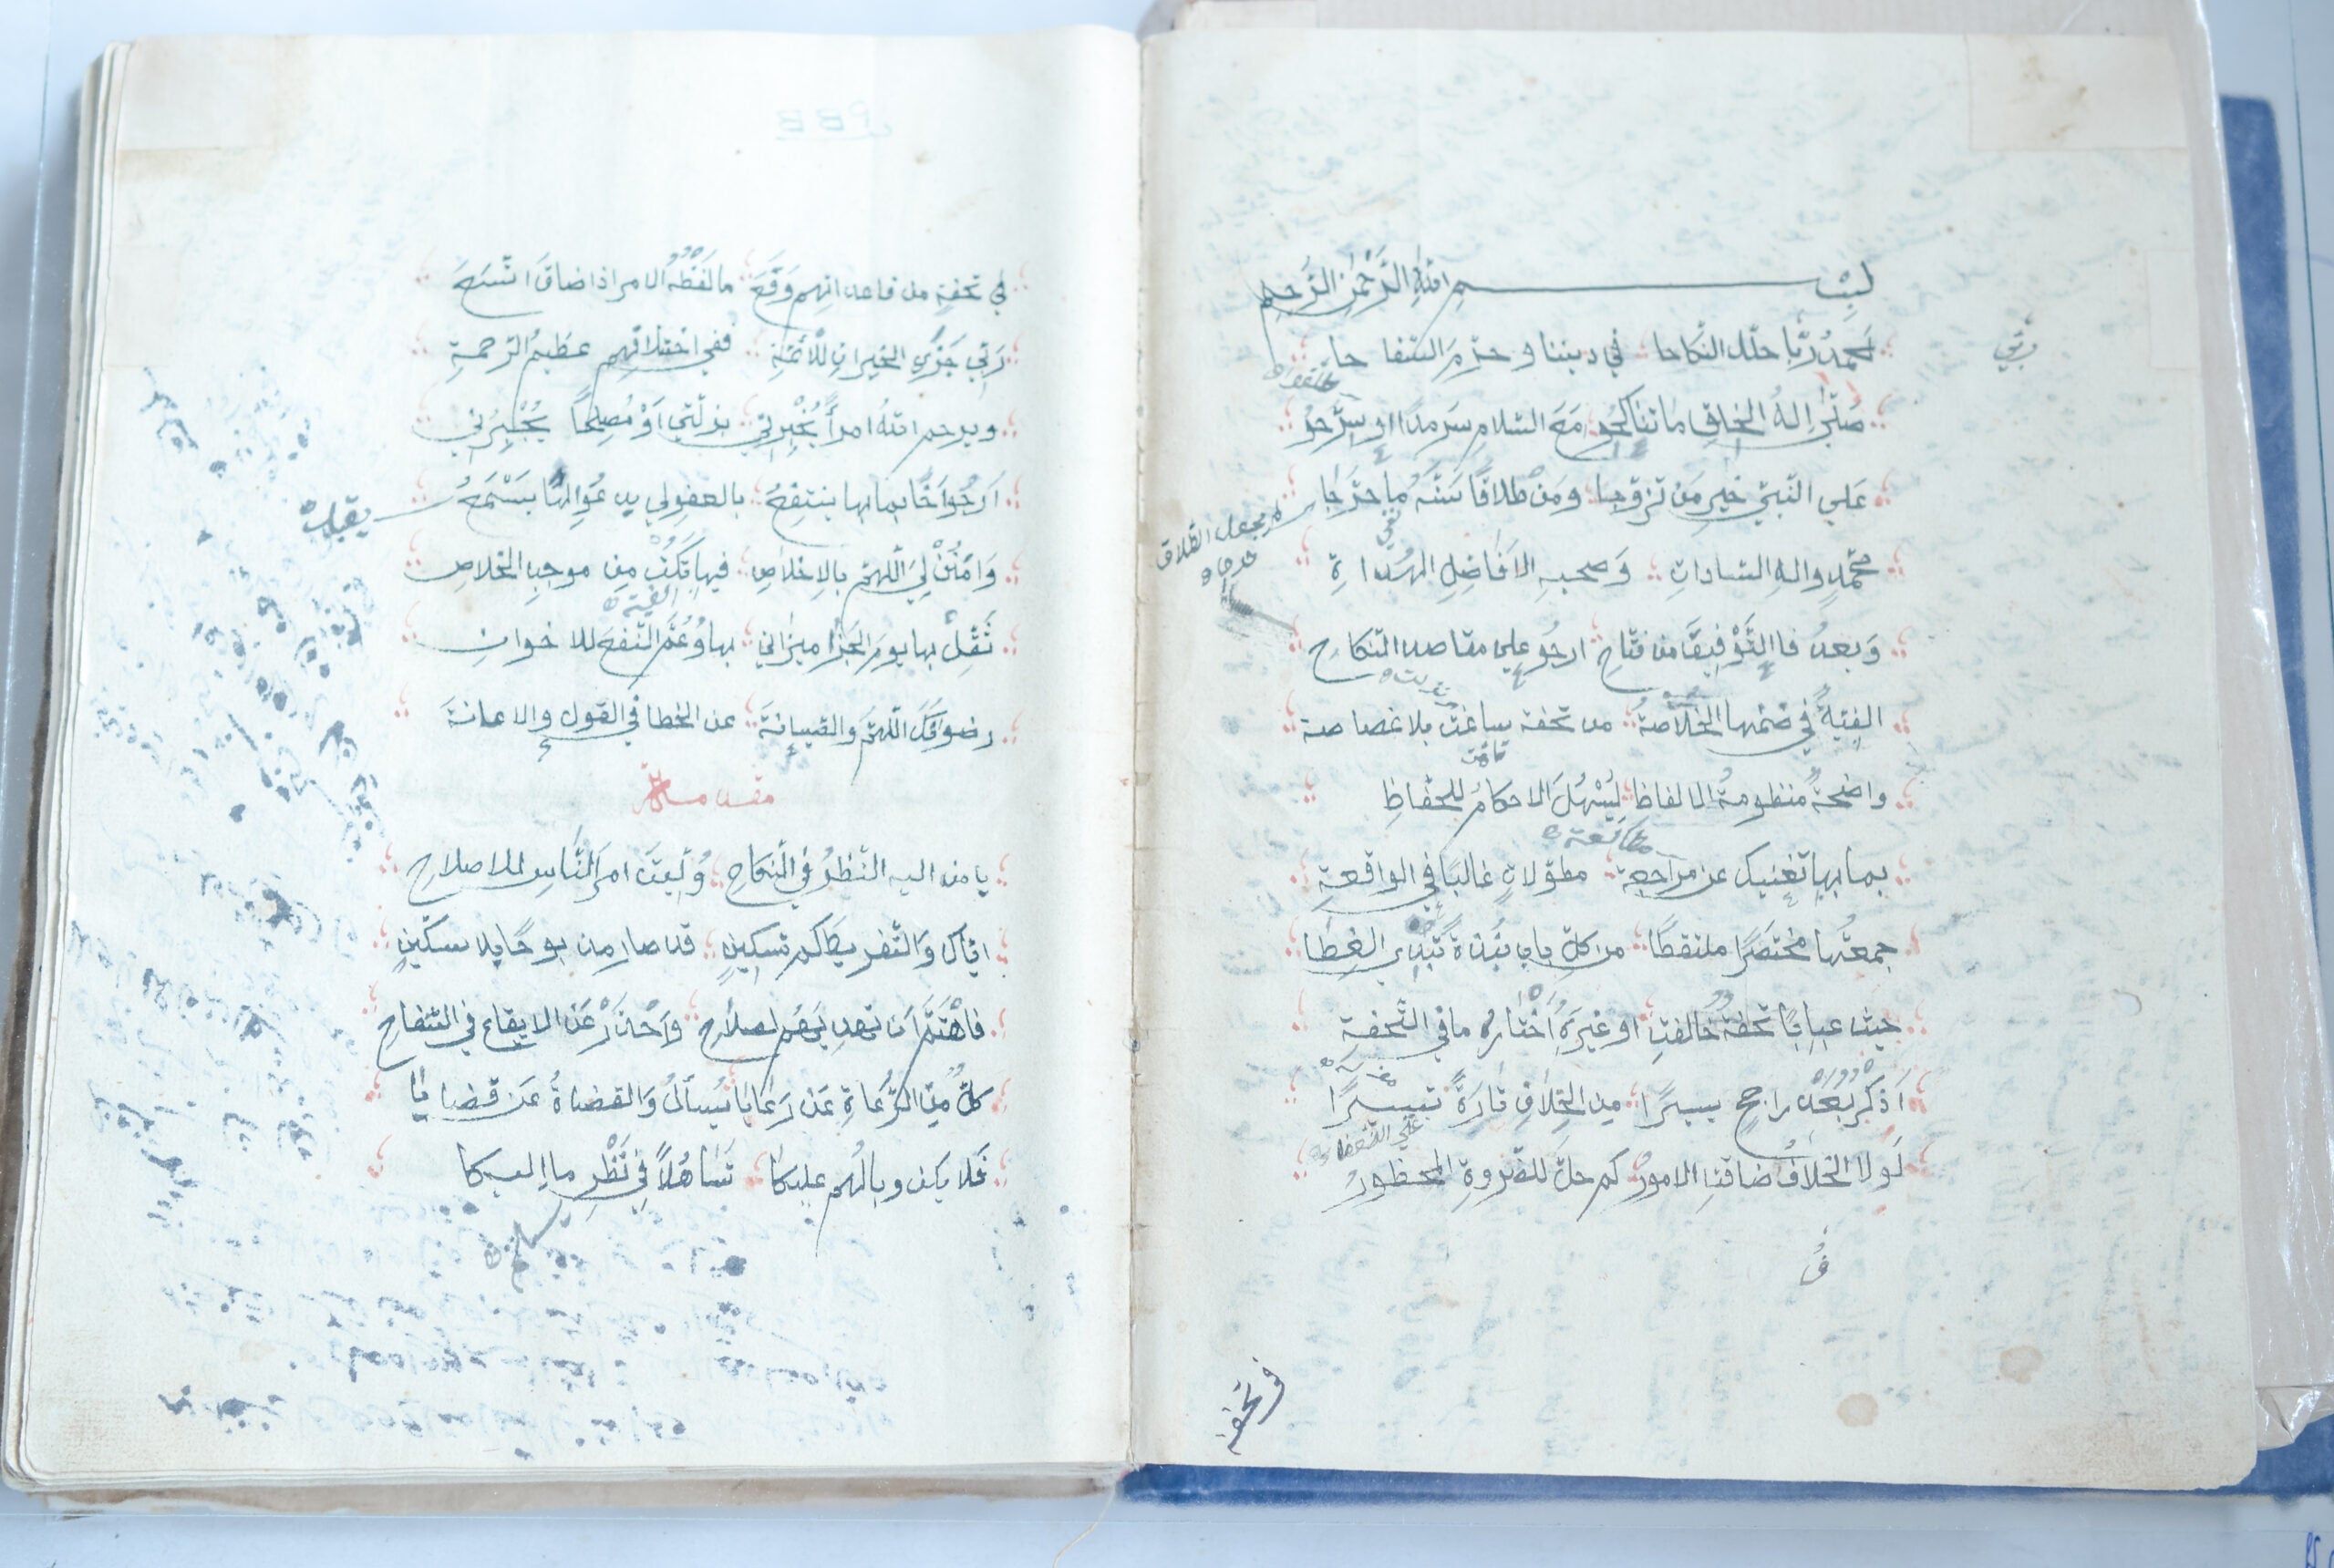 بِسْمِ اللّٰهِ الرَّحْمٰنِ الرَّحِيمِ
نحمدُ ربًّا حلّل النّكاحا في ديننا وحرّمَ السّفاحا
صَلّى إلهُ الخلقِ ما تناكحُوا مَعَ السّلامِ سرمدًا او سرّحُوا
عَلي النّبيّ خيرِ مَن تزوّجا ومَن طلاقًا سَنَّهُ ما حرّجَا
محمّدٍ والهِ السّاداتِ وَصحبهِ الأفاضِلِ الهُداةِ
وَبعدُ فاالتَّوْفِيقَ من فتّاحِ ارجُو علي مقاصد النّكاحِ
الفيةً في ضمنها الخُلاصةُ من تحفة ساغت بلا غصاصة
واضحةً منظومةُ الالفاظ لِيَسْهُلَ الاحكامُ للحفّاظِ
بما بها تغنيك عن مراجعة مطوّلاتٍ غالبًا في الواقعةِ
جمعتُها مختصَرًا ملتقطًا من كلّ بابٍ نُبْذةً تُبْدِي الغِطَا
حيث عبابًا تحفةٌ خالفتِ او غيرَهُ أخْتَارُ ما في التّحفةِ
اَذكر بَعدَ راجحٍ يسيرًا مِن الخِلافِ تارَةً تيسيرًا
لَولا الخلافُ ضاقتِ الامورُ كم حلّ للضّروةِ المحظورُ
في تحفةٍ من قاعداتهم وَقَعَ ما لَفْظُهُ الامر اذا ضاقَ اتّسَعَ
رَبّي جَزَي الخيراتِ للأئمّةِ ففي اختلافهم عظيمُ الرّحمةِ
ويرحم اللهُ امرأً يُخْبِرُني بزلّتي أوْ مُصلِحًا يُجْبِرُني
اَرجُو اَخًا بما بها ينتفِعُ بالعفو لي يدعُو الهًا يسْمَعُ
وَامْنُنْ لِيَ اللّهمّ بالاخلاصِ فيها تَكُنْ مِن موجبِ الخلاصِ
ثَقِّلْ بها يومَ الجزَا ميزاني بها وعُمَّ النّفعَ للاخوانِ
رضوانَكَ اللّهمّ والصّيانةَ عن الخطا في القولِ والاعانةَ
مقدمة
يا من اليه النّظرُ في النّكاح وُلّيتَ امرَ النّاسِ للاصلاحِ
ايّاك وَالتّفريط كم مسكينٍ قد صار مذبوحًا بلا سكّينِ
فاهْتَمَّ أن تهدِيَهُم لصلاحِ وَاحْذَرْ عَن الايقاعِ في السّفاحِ
كلٌّ مِنَ الرُّعاةِ عَن رَعَايا يُسألُ وَالقضاةُ عَن قضايا
فلا يكن وبالُهم عليكا تَسَاهُلاً في نَظْرِ ما اليكا